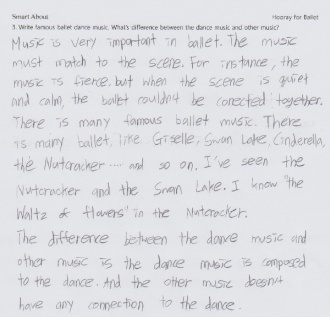 Smart About
Hooray for Ballet
3. Write famous ballet dance music. What's difference between the dance music and other music?
Music is very important in ballet. The music
must match to the scene. For instance, the
music is fierce, but when the scene is quiet
and calm, the ballet couldn't be conected together.
There is many famous ballet music. There
is many ballet, like Giselle, Swan Lake, Cinderella,
the Nutcracker .... and so on. I've seen the
Nutcracker and the Swan Lake. I know "the
Waltz of flowers" in the Nutcracker.
The difference between the dance music and
other music is the dance music is composed
to the dance. And the other music doesn't
have any connection to the dance.